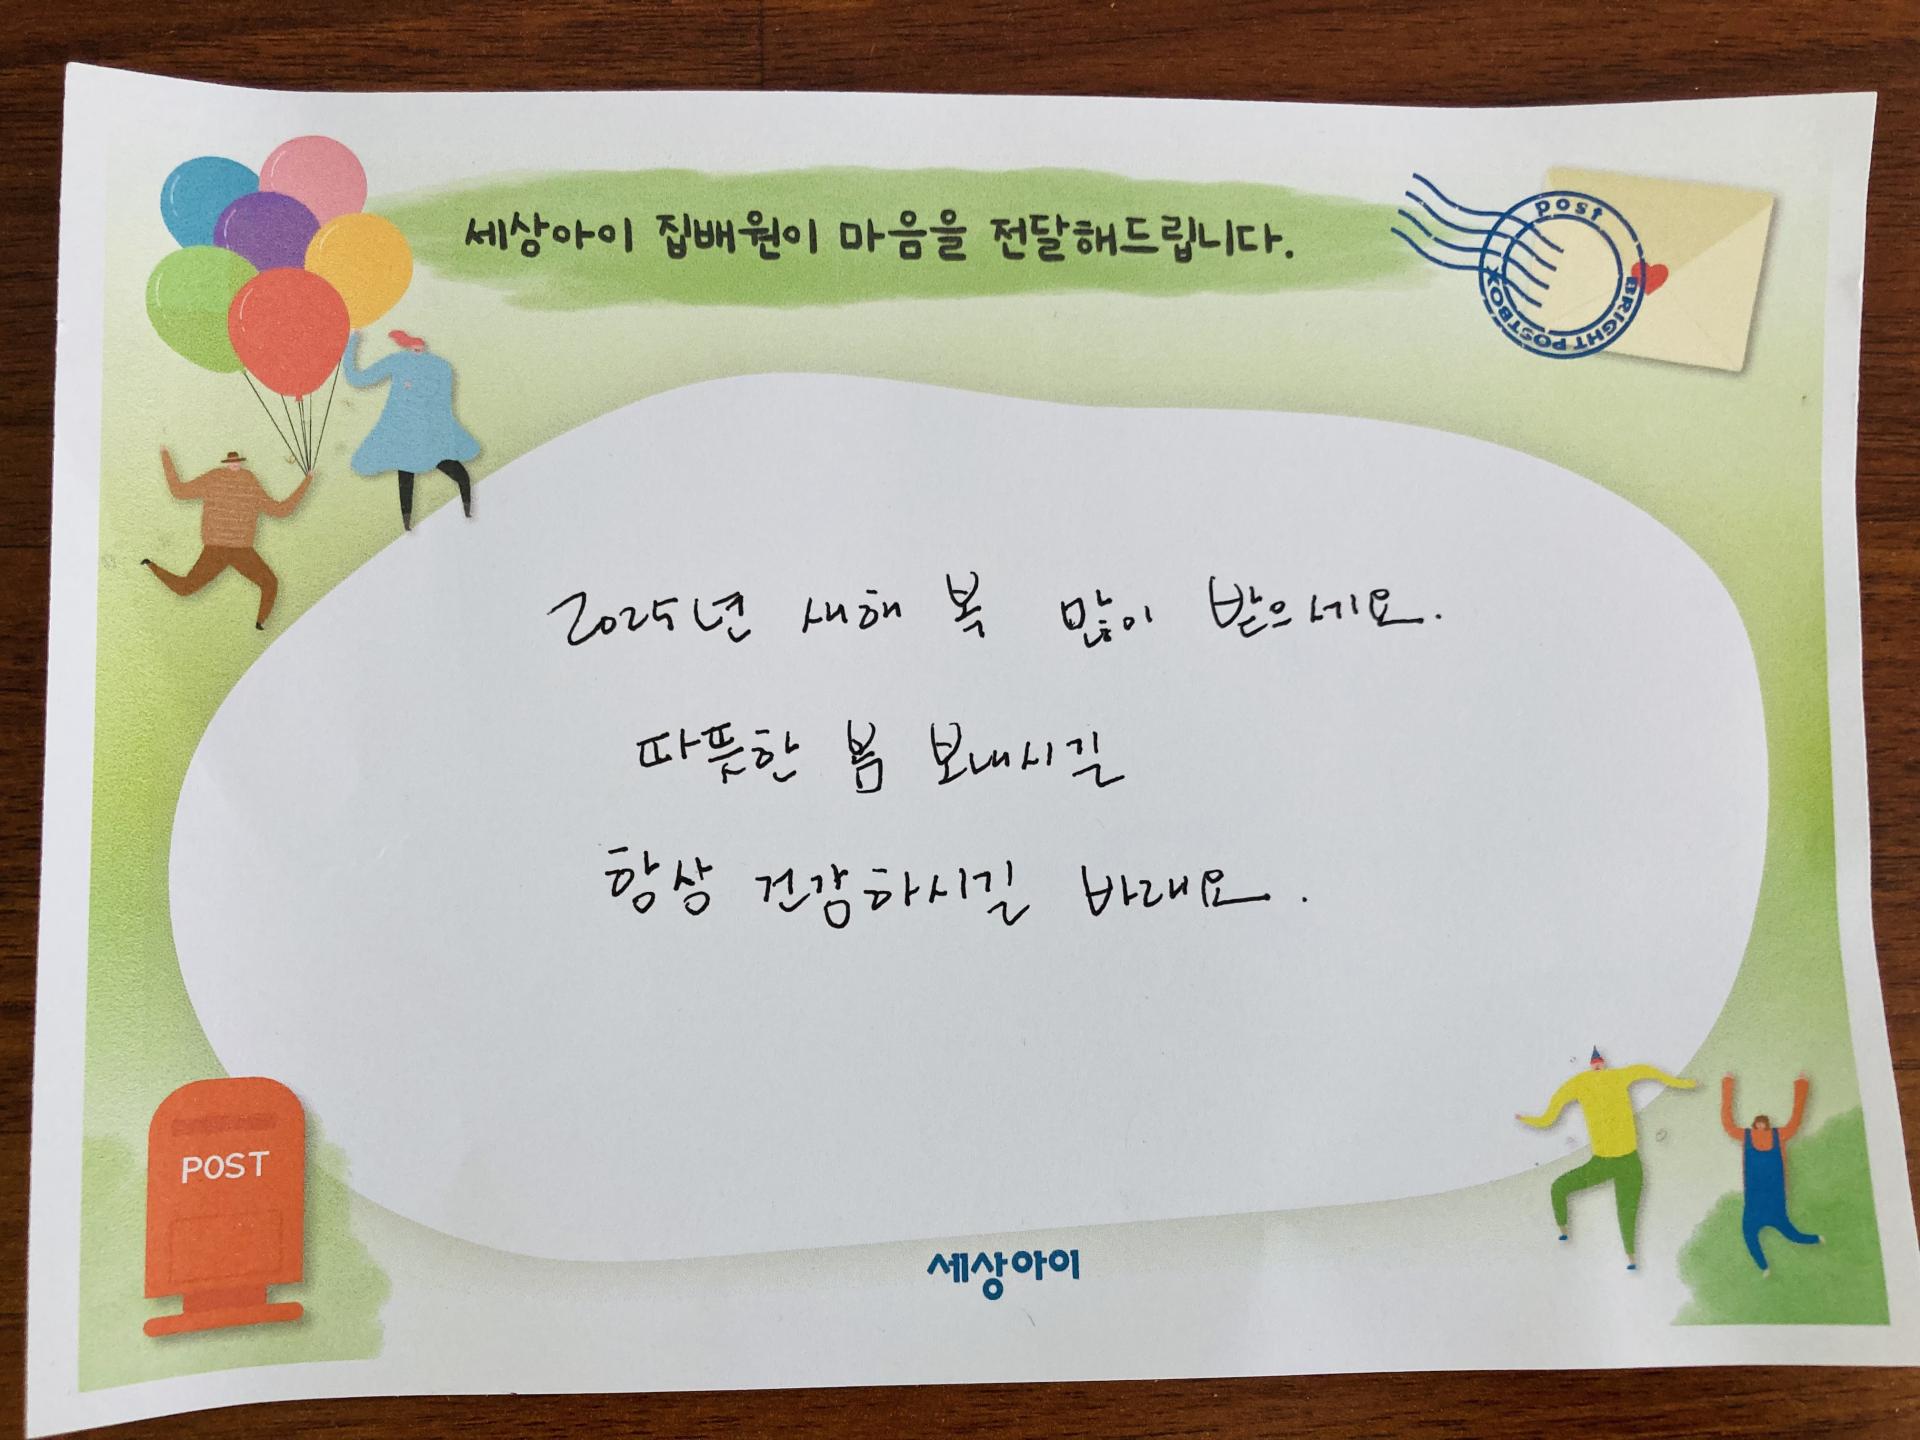 세상아이 집배원이 마음을 전달해드립니다.
post
BRIGHT POSTBOX
2025년 새해 복 많이 받으세요.
따뜻한 봄 보내시길
항상 건강하시길 바래요.
POST
세상아이